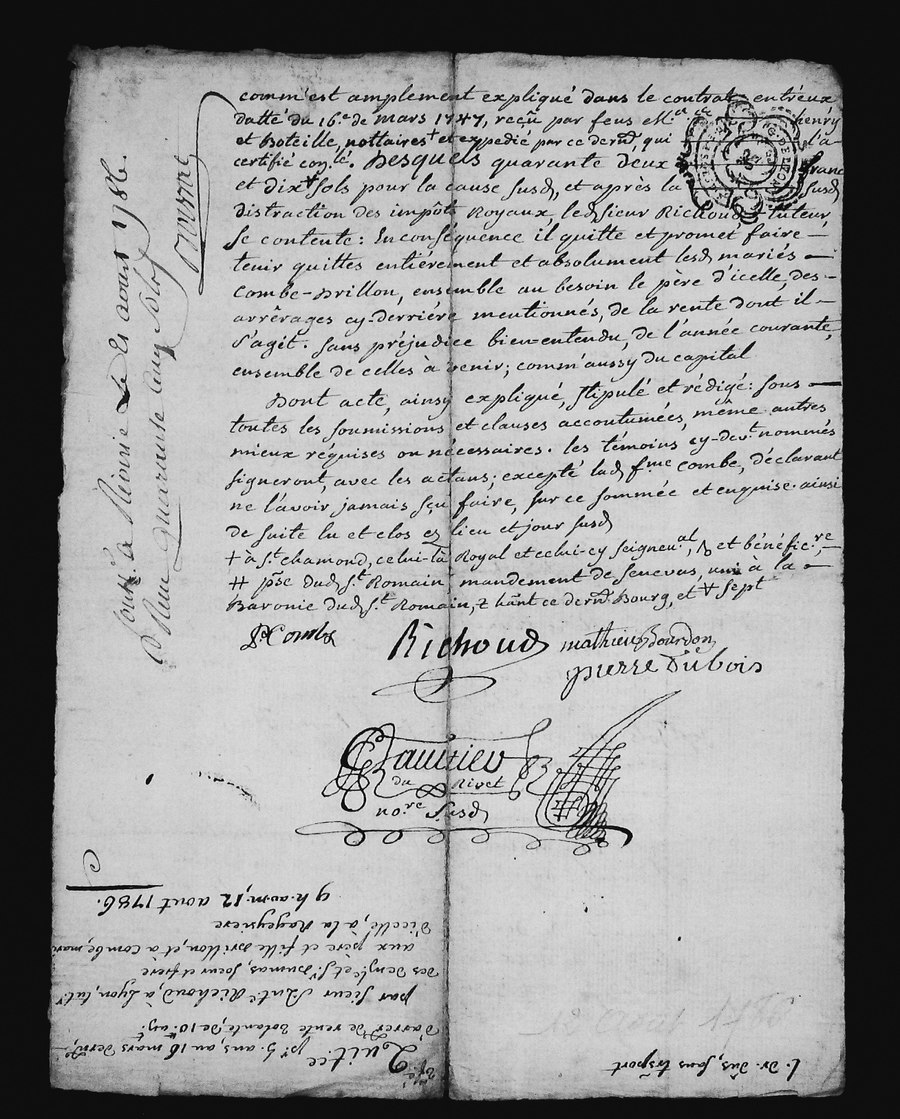 comm'est amplement expliqué dans le contrat entr'eux
datté du 16.e de mars 1747, reçu par feus M.e henry
et Boteille, nottaires + et expedié par ce dern.r, qui l'a
certifié con.lé. Desquels quarante deux franc
et dix + sols pour la cause susd, et après la susd
distraction des impôts Royaux, led sieur Richoud - tuteur,
se contente: En conséquence il quitte et promet faire —
tenir quittes entiérement et absolument lesd mariés —
Combe-Drillon, ensemble au besoin le père d'icelle, des-
arrêrages cy-derriére mentionnés, de la rente dont il —
s'agit. sans préjudice bien-entendu, de l'année courante,
ensemble de celles à venir; comm'aussy du capital
Dont acte, ainsy expliqué, stipulé et rédigé: sous —
toutes les soumissions et clauses accoutumées, même autres
mieux requises ou nécessaires. les témoins cy-dev.t nommés
signeront, avec les actans; excepté lad f.me combe, déclarant
ne l'avoir jamais sçu faire, sur ce sommée et enquise. ainsi
de suite lu et clos ez lieu et jour susd
+ à S.t chamond, celui-là Royal et celui-cy seigneu.al, et bénéfic.re —
# p.sse dud S.t Romain mandement de Senevas, uni a la —
Baronie dud S.t Romain, hânt ce dern.r Bourg, et + sept
Combe
Richoud
mathieu Bourdon
pierre Dubois
Gaultier
du Rivet
no.re susd
Contr.lé à Rivirie le 29 août 1786.
Reçu quarante cinq sols
Quit.ce p.r 5. ans, au 16 mars dern.r,
d'arrér.s de rente volante, de 10.
par sieur Ant.e Richoud, à Lyon, tut.r
des Dem.lle et S.r Dumas, soeur et frère
aux père et fille Drillon, et à combe, mari
d'icelle, à la Rageynere
9 h. av. m. 12 août 1786.
l. dr. dûs, sans trsport